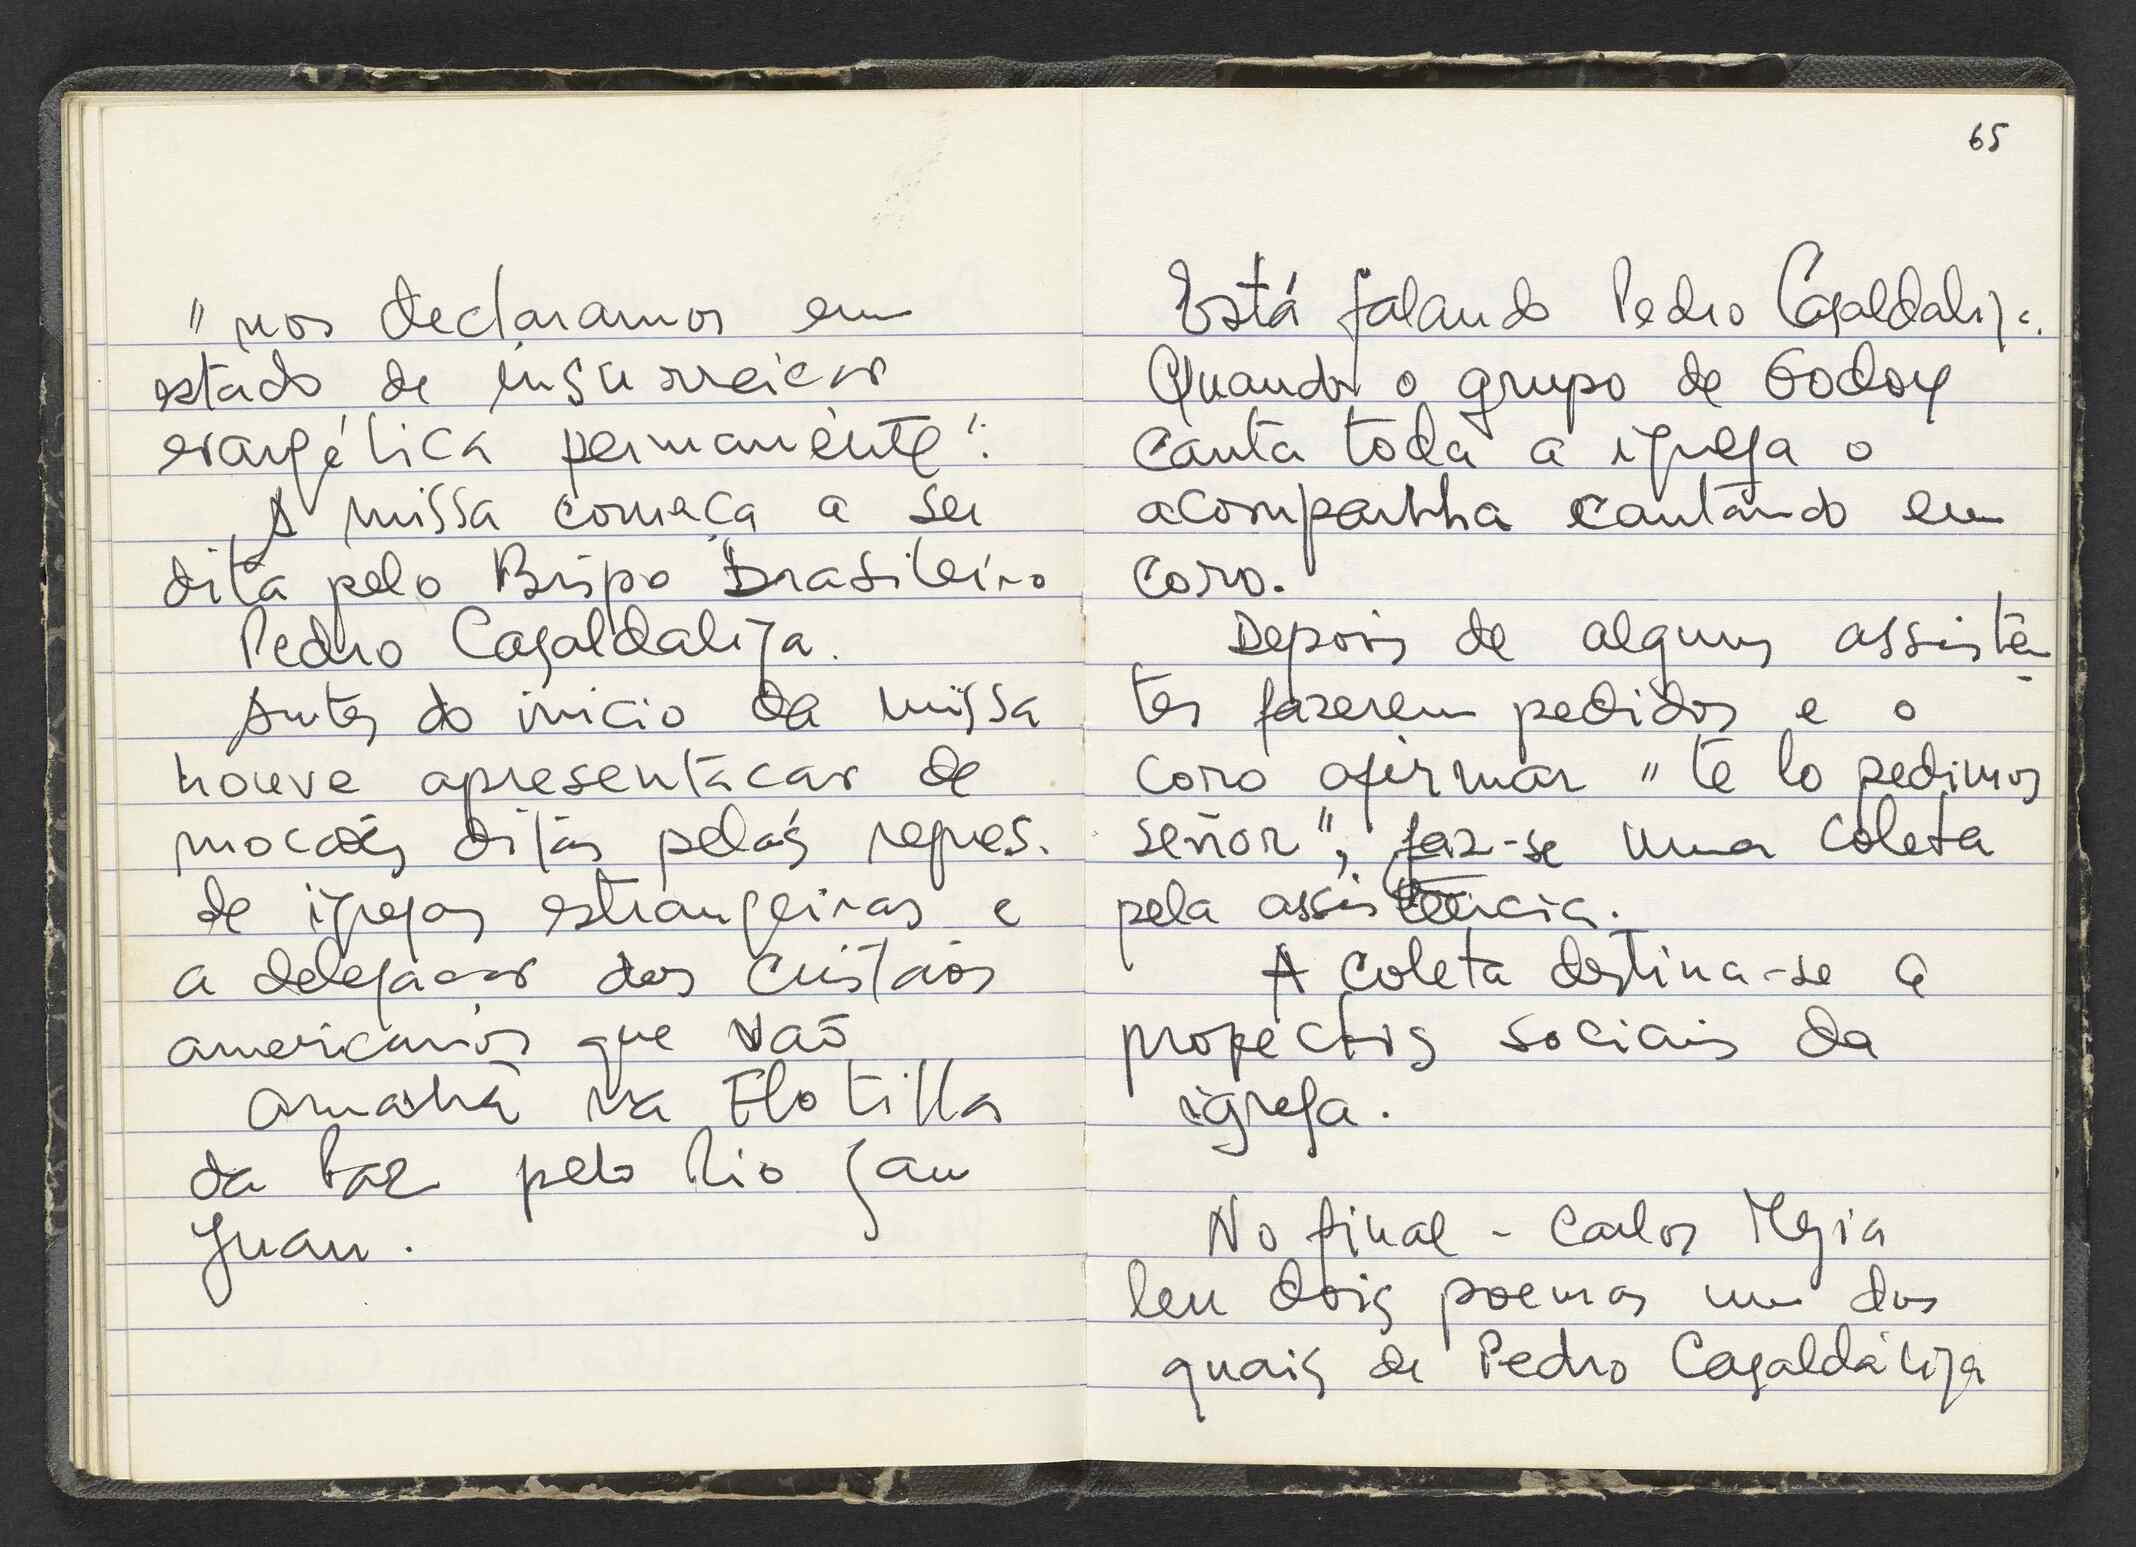 "nos declaramos em
estado de insurreicao
evangélica permanente".
A missa começa a ser
dita pelo Bispo Brasileiro
Pedro Casaldaliga.
Antes do inicio da missa
houve apresentacao de
mocões ditas pelas repres.
de igrejas estrangeiras e
a delegacao dos cristãos
americanos que vão
amanhã na Flotilla
da Paz pelo Rio San
Juan.
65
Está falando Pedro Casaldaliga.
Quando o grupo de Godoy
canta toda a igreja o
acompanha cantando em
coro.
Depois de alguns assistên
tes fazerem pedidos e o
coro afirmar "te lo pedimos
señor", faz-se uma coleta
pela assistência.
A coleta destina-se a
projectos sociais da
igreja.
No final - Carlos Mejia
leu dois poemas um dos
quais de Pedro Casaldáliga